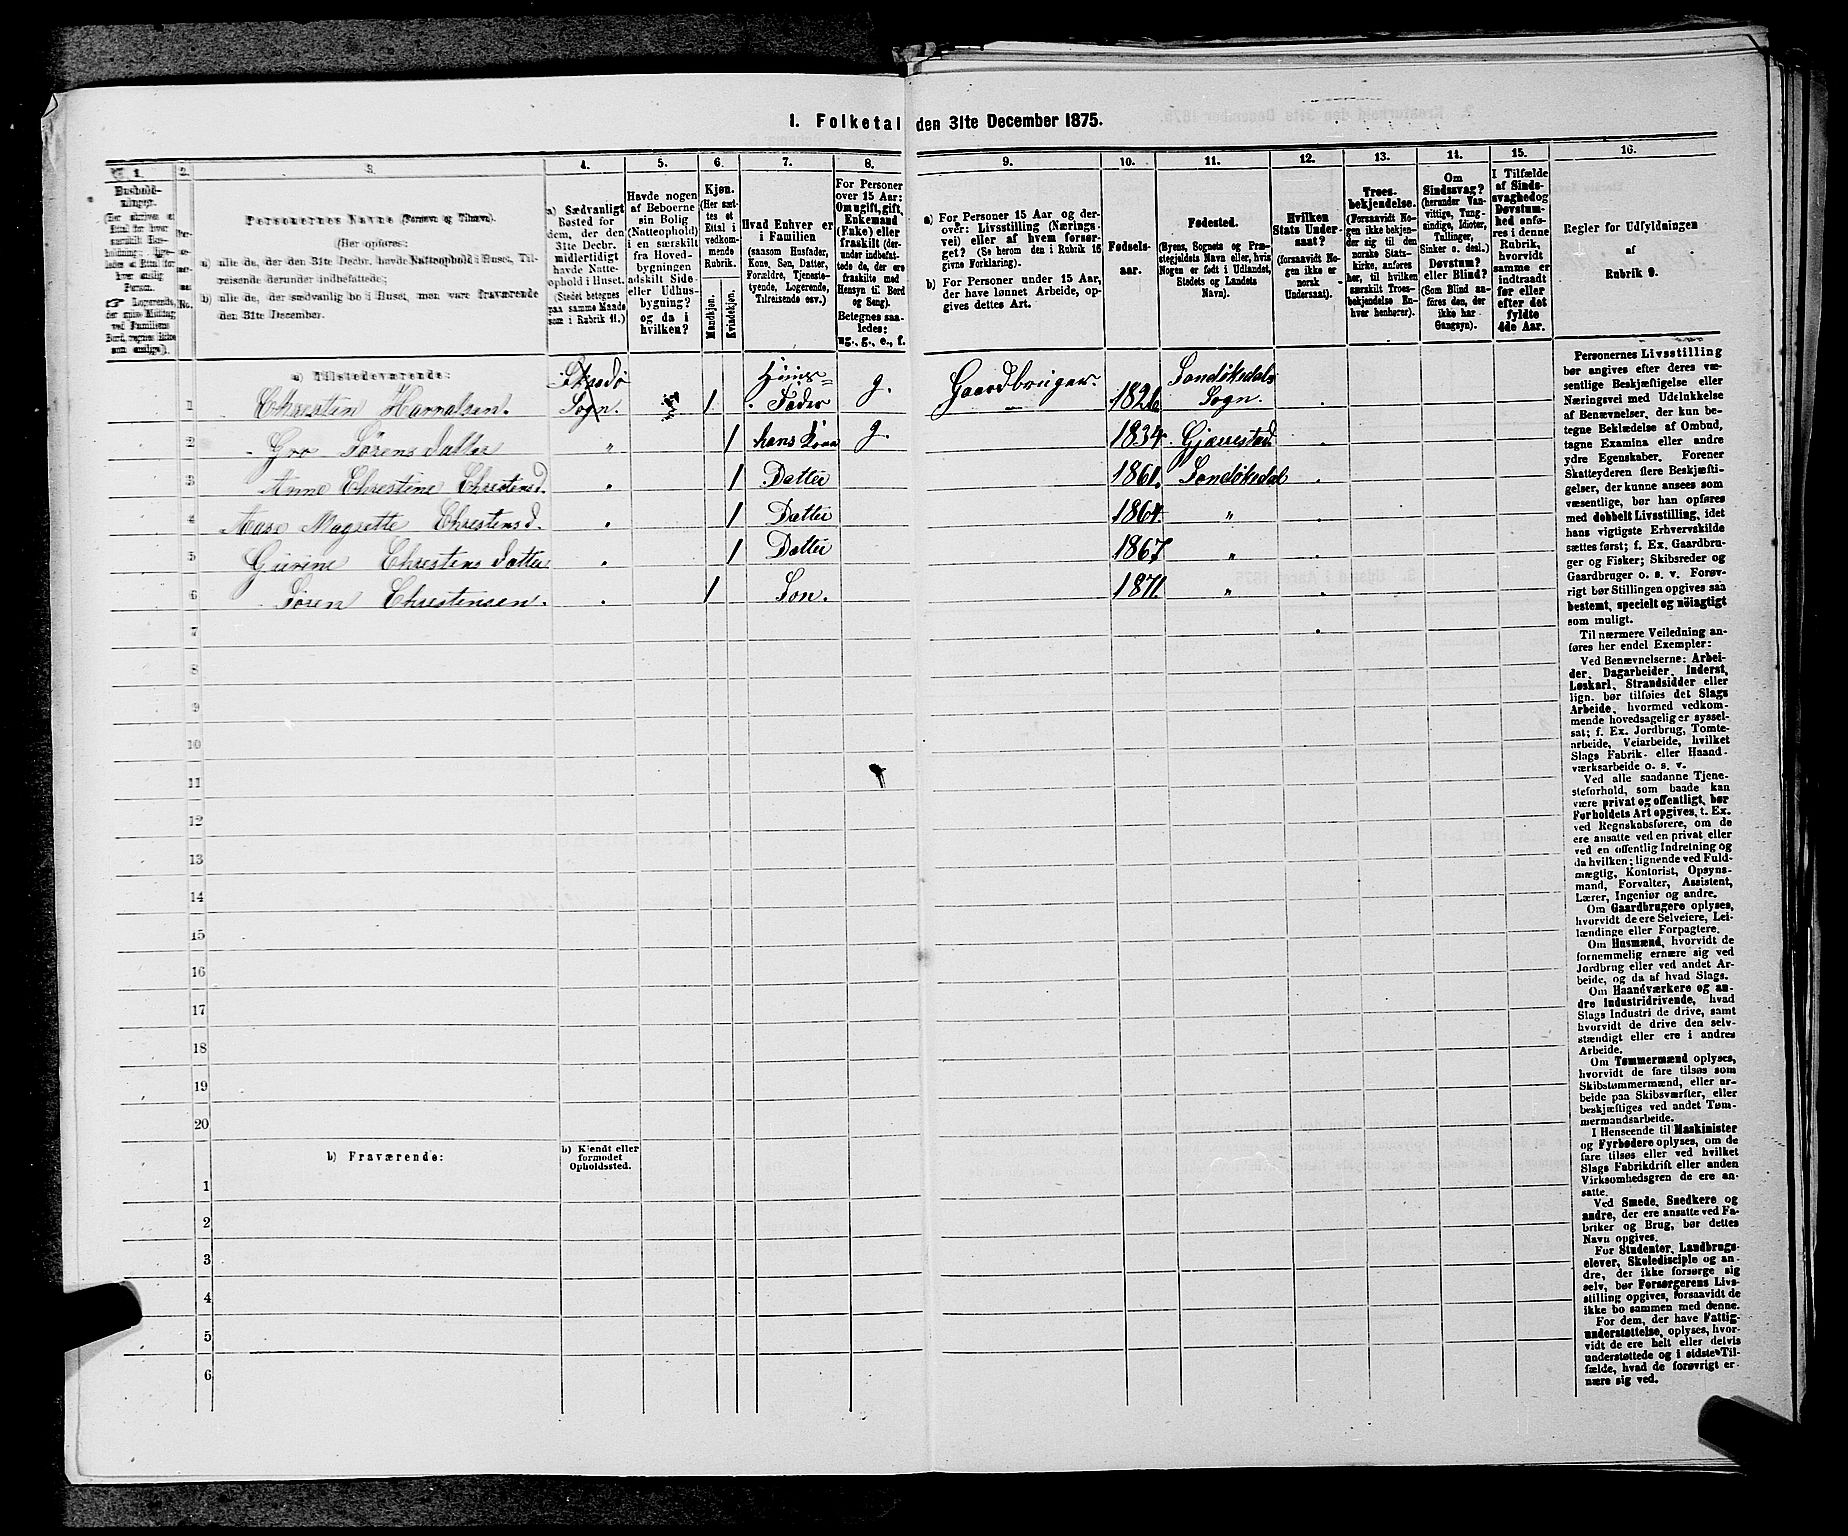 1. Folketal den 31te December 1875.
1. 2. 3. 4. 5. 6. 7. 8. 9. 10. 11. 12. 13. 14. 15. 16.
Personernes Navne (Fornavn og Tilnavn).
(Her opføres:
a) alle de, der den 31te Decbr. havde Natteophold i Huset, Til-
reisende derunder indbefattede;
b) alle de, der sædvanlig bo i Huset, men vare fraværende
den 31te December.
a) Sædvanligt
Bosted for
dem, der den
31te Decbr.
midlertidigt
havde Natte-
ophold i Huset.
(Stedet betegnes
paa samme Maade
som i Rubrik 11.)
Havde nogen
af Beboerne
ein Bolig
(Natteophold)
i en særskilt
fra Hoved-
bygningen
adskilt Side-
eller Udhus-
bygning?
og da i
hvilken?
Kjøn.
(Her sæt-
tes et
Ettal i
vedkom-
mende
Rubrik.
Mandkjøn.
Kvindekjøn.
Hvad Enhver er
i Familien
(saasom Husfader,
Kone, Søn, Datter,
Forældre, Tjeneste-
tyende, Logerende,
Tilreisende osv.)
For Personer
over 15 Aar:
Om ugift, gift,
Enkemand
(Enke) eller
fraskilt (der-
under indbefat-
tede de, der ere
fraskilte med
Hensyn til Bord
og Seng).
Betegnes saa-
ledes:
ug., g., e., f.
a) For Personer 15 Aar og der-
over: Livsstilling (Nærings-
vei) eller af hvem forsør-
get? (Se herom den i Rubrik 16
givne Forklaring).
b) For Personer under 15 Aar,
der have lønnet Arbeide, op-
gives dettes Art.
Fødsels-
aar.
Fødested.
(Byens, Sognets og Præ-
stegjeldets Navn eller, hvis
Nogen er født i Udlandet,
Stedets og Landets
Navn).
Hvilken
Stats Under-
saat?
(forsaavidt No-
gen ikke er
norsk
Undersaat).
Troes-
bekjendelse.
(Forsaavidt No-
gen ikke bekjen-
der sig til den
norske Stats-
kirke, anføres
her, til hvilken
særskilt Troes-
bekjendelse En-
hver henhører).
Om
Sindssvag?
(herunder Van-
vittige, Tung-
sindige, Idioter,
Tullinger,
Sinker o. desl.)
Døvstum?
eller Blind?
(Som Blind an-
føres den, der
ikke har
Gangsyn).
I Tilfælde
af Sinds-
svaghed og
Døvstum-
hed anfø-
res i denne
Rubrik,
hvorvidt
samme er
indtraadt
før eller
efter det
fyldte
4de Aar.
Regler for Udfyldningen
af
Rubrik 9.
a) Tilstedeværende:
1 Chresten Sogn. 1 Huus= Fader g. Gaardbruger. Sandøkedals Sogn.
2 Gro Sørens datter " 1 hans Kone g. 1834. Gjærestad
3 Anne Chrestine Chrestensd. 1 Datter 1861. Sandøkedal
4 Aase Magrette Chrestensd. 1 Datter 1864. "
5 Gurine Chrestens datter 1 Datter 1867. "
6 Søren Chrestensen. 1 Søn. 1871. "
7
8
9
10
11
12
13
14
15
16
17
18
19
20
b) Fraværende:
b) Kjendt eller
formodet
Opholdssted.
1
2
3
4
5
6
Personernes Livsstilling
bør angives efter deres væ-
sentlige Beskjæftigelse eller
Næringsvei med Udelukkelse
af Benævnelser, der kun be-
tegne Beklædelse af Ombud,
tagne Examina eller andre
ydre Egenskaber. Forener
Skatteyderen flere Beskjæfti-
gelser, der kunne ansees som
væsentlige, bør han opføres
med dobbelt Livsstilling, idet
hans vigtigste Erhvervskilde
sættes først; f. Ex. Gaardbru-
ger og Fisker; Skibsreder og
Gaardbruger o. s. v. Forøv-
rigt bør Stillingen opgives saa
bestemt, specielt og nöiagtigt
som muligt.
Til nærmere Veiledning an-
føres her endel Exempler:
Ved Benævnelserne: Arbei-
der, Dagarbeider, Inderst,
Løskarl, Strandsidder eller
lign. bør tilføies det Slags
Arbeide, hvormed vedkom-
mende hovedsagelig er syssel-
sat; f. Ex. Jordbrug, Tomte-
arbeide, Veiarbeide, hvilket
Slags Fabrik- eller Haand-
værksarbeide o. s. v.
Ved alle saadanne Tjene-
steforhold, som baade kan
være privat og offentligt, bør
Forholdets Art opgives, t. Ex.
ved Regnskabsførere, om de
ere ansatte ved en privat eller
ved en offentlig Indretning og
da hvilken; lignende ved Fuld-
mægtig, Kontorist, Opsyns-
mand, Forvalter, Assistent,
Lærer, Ingeniør og andre.
Om Gaardbrugere oplyses,
hvorvidt de ere Selveiere, Lei-
lændinge eller Forpagtere.
Om Husmænd, hvorvidt de
fornemmelig ernære sig ved
Jordbrug eller ved andet Ar-
beide, og da af hvad Slags.
Om Haandværkere og an-
dre Industridrivende, hvad
Slags Industri de drive, samt
hvorvidt de drive den selv-
stændigt eller ere i andres
Arbeide.
Om Tømmermænd oplyses,
hvorvidt de fare tilsøs som
Skibstømmermænd, eller ar-
beide paa Skibsværfter, eller
beskjæftiges ved andet Tøm-
mermandsarbeide.
I Henseende til Maskinister
og Fyrbødere oplyses, om de
fare tilsøs eller ved hvilket
Slags Fabrikdrift eller anden
Virksomhedsgren de ere an-
satte.
Ved Smede, Snedkere og
andre, der ere ansatte ved Fa-
briker og Brug, bør dettes
Navn opgives.
For Studenter, Landbrugs-
elever, Skoledisciple og an-
dre, der ikke forsørge sig
selv, bør Forsørgerens Livs-
stilling opgives, forsaavidt de
ikke bo sammen med denne.
For dem, der have Fattig-
understøttelse, oplyses, hvor-
vidt de ere helt eller delvis
understøttede og i sidste Til-
fælde, hvad de forøvrigt er-
nære sig ved.